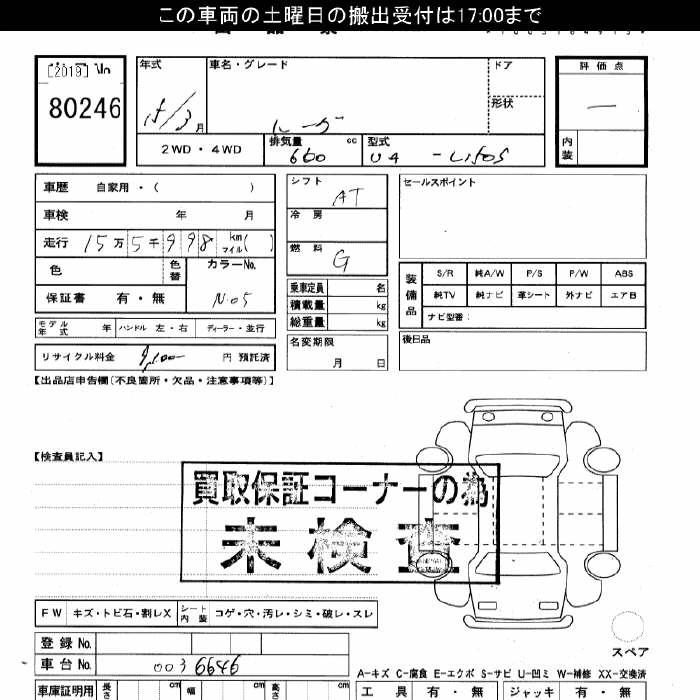 この車両の土曜日の搬出受付は17:00まで
[2019] No
80246
年式 車名・グレード ドア
15/3 月 形状
2WD・4WD 排気量 660 cc 型式
評価点
―
内装
車歴 自家用・( )
車検 年 月
走行 15万5千998 km マイル( )
色 色替 カラーNo.
保証書 有・無 N-05
モデル年式 年 ハンドル 左・右 ディーラー・並行
リサイクル料金 円 預託済
シフト AT
冷房
燃料 G
乗車定員 名
積載量 kg
総重量 kg
名変期限
月 日
セールスポイント
装備品 S/R 純A/W P/S P/W ABS
純TV 純ナビ 革シート 外ナビ エアB
ナビ型番:
後日品
【出品店申告欄(不良箇所・欠品・注意事項等)】
【検査員記入】
買取保証コーナーの為
未検査
FW キズ・トビ石・割レX シート内装 コゲ・穴・汚レ・シミ・破レ・スレ
登録 No.
車台 No. 0036646
スペア
A-キズ C-腐食 E-エクボ S-サビ U-凹ミ W-補修 XX-交換済
車庫証明用 長さ cm 幅 cm 高さ cm
工具 有・無 ジャッキ 有・無